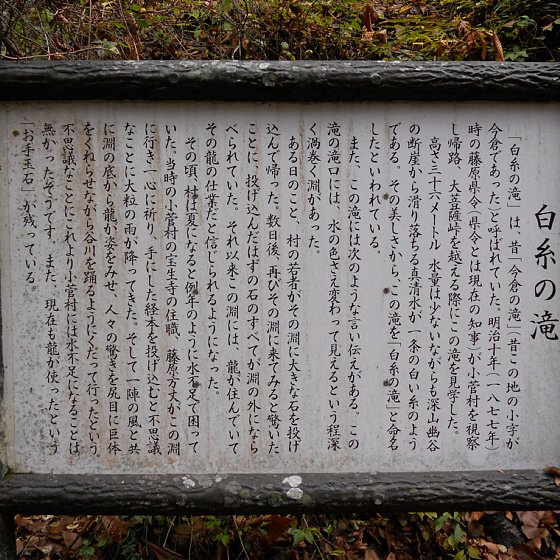 白糸の滝
「白糸の滝」は、昔「今倉の滝」昔この地の小字が
今倉であった」と呼ばれていた。明治十年(一八七七年)
時の藤原県令(県令とは現在の知事)が小菅村を視察
し帰路、大菩薩峠を越える際にこの滝を見学した。
高さ三十六メートル 水量は少ないながらも深山幽谷
の断崖から滑り落ちる真清水が一条の白い糸のよう
である。その美しさから、この滝を「白糸の滝」と命名
したといわれている。
また、この滝には次のような言い伝えがある。この
滝の滝口には、水の色さえ変わって見えるという程深
く渦巻く淵があった。
ある日のこと、村の若者がその淵に大きな石を投げ
込んで帰った。数日後、再びその淵に来てみると驚いた
ことに、投げ込んだはずの石のすべてが淵の外になら
べられていた。それ以来この淵には、龍が住んでいて
その龍の仕業だと信じられるようになった。
その頃、村は夏になると例年のように水不足で困って
いた。当時の小菅村の宝生寺の住職、藤原方丈がこの淵
に行き一心に祈り、手にした経本を投げ込むと不思議
なことに大粒の雨が降ってきた。そして一陣の風と共
に淵の底から龍が姿をみせ、人々の驚きを尻目に巨体
をくねらせながら谷川を踊るようにくだって行ったという。
不思議なことにこれより小菅村には水不足になることは
無かったそうです。また、現在も龍が使ったという
「お手玉石」が残っている。